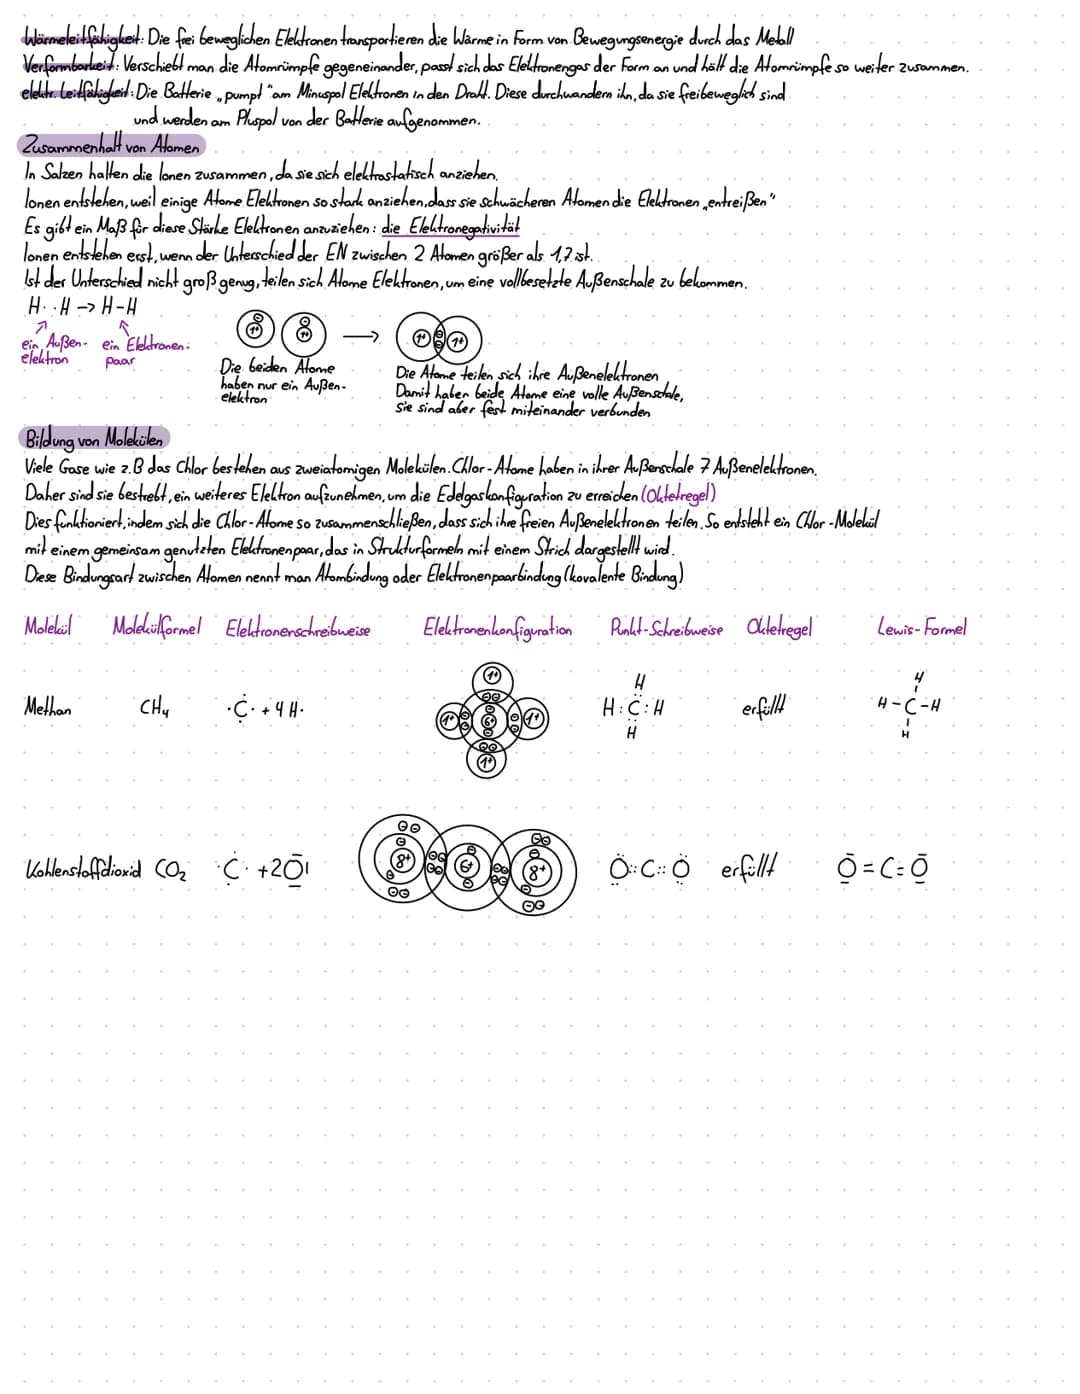 Wärmeleitfähigkeit: Die frei beweglichen Elektronen transportieren die Wärme in Form von Bewegungsenergie durch das Metall
Verformbarkeit: Verschiebt man die Atomrümpfe gegeneinander, passt sich das Elektronengas der Form an und hält die Atomrümpfe so weiter zusammen.
elektr. Leitfähigkeit: Die Batterie „pumpt" am Minuspol Elektronen in den Draht. Diese durchwandern ihn, da sie freibeweglich sind
und werden am Pluspol von der Batterie aufgenommen.
Zusammenhalt von Atomen
In Salzen halten die Ionen zusammen, da sie sich elektrostatisch anziehen.
Ionen entstehen, weil einige Atome Elektronen so stark anziehen, dass sie schwächeren Atomen die Elektronen „entreißen"
Es gibt ein Maß für diese Stärke Elektronen anzuziehen: die Elektronegativität
Ionen entstehen erst, wenn der Unterschied der EN zwischen 2 Atomen größer als 1,7 ist.
Ist der Unterschied nicht groß genug, teilen sich Atome Elektronen, um eine vollbesetzte Außenschale zu bekommen.
H· ·H -> H-H
ein Außen- ein Elektronen-
elektron paar
1+ 1+ 1+ 1+
Die beiden Atome
haben nur ein Außen-
elektron
Die Atome teilen sich ihre Außenelektronen
Damit haben beide Atome eine volle Außenschale,
sie sind aber fest miteinander verbunden
Bildung von Molekülen
Viele Gase wie z.B das Chlor bestehen aus zweiatomigen Molekülen. Chlor-Atome haben in ihrer Außenschale 7 Außenelektronen.
Daher sind sie bestrebt, ein weiteres Elektron aufzunehmen, um die Edelgaskonfiguration zu erreichen (Oktetregel)
Dies funktioniert, indem sich die Chlor-Atome so zusammenschließen, dass sich ihre freien Außenelektronen teilen. So entsteht ein Chlor-Molekül
mit einem gemeinsam genutzten Elektronenpaar, das in Strukturformeln mit einem Strich dargestellt wird.
Diese Bindungsart zwischen Atomen nennt man Atombindung oder Elektronenpaarbindung (kovalente Bindung)
Molekül Molekülformel Elektronenschreibweise Elektronenkonfiguration Punkt-Schreibweise Oktetregel Lewis-Formel
Methan CH₄ ·Ċ· + 4 H· 1+ 1+ 6+ 1+ 1+ H H:C̈:H H erfüllt H H-C-H H
Kohlenstoffdioxid CO₂ ·Ċ· +2O̅| 8+ 6+ 8+ Ö::C::Ö erfüllt O̅=C=O̅